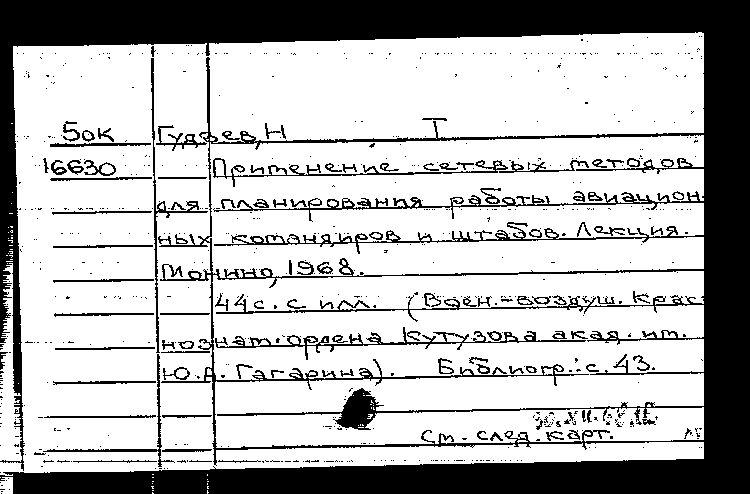 5ок Гудаев, Н Т
16630 Применение сетевых методов
для планирования работы авиацион
ных командиров и штабов. Лекция.
Монино, 1968.
44с. с илл. (Воен.-воздуш. Крас
нознам. ордена Кутузова акад. им.
Ю.А. Гагарина). Библиогр.: с. 43.
30.XII.68.
См. след. карт.